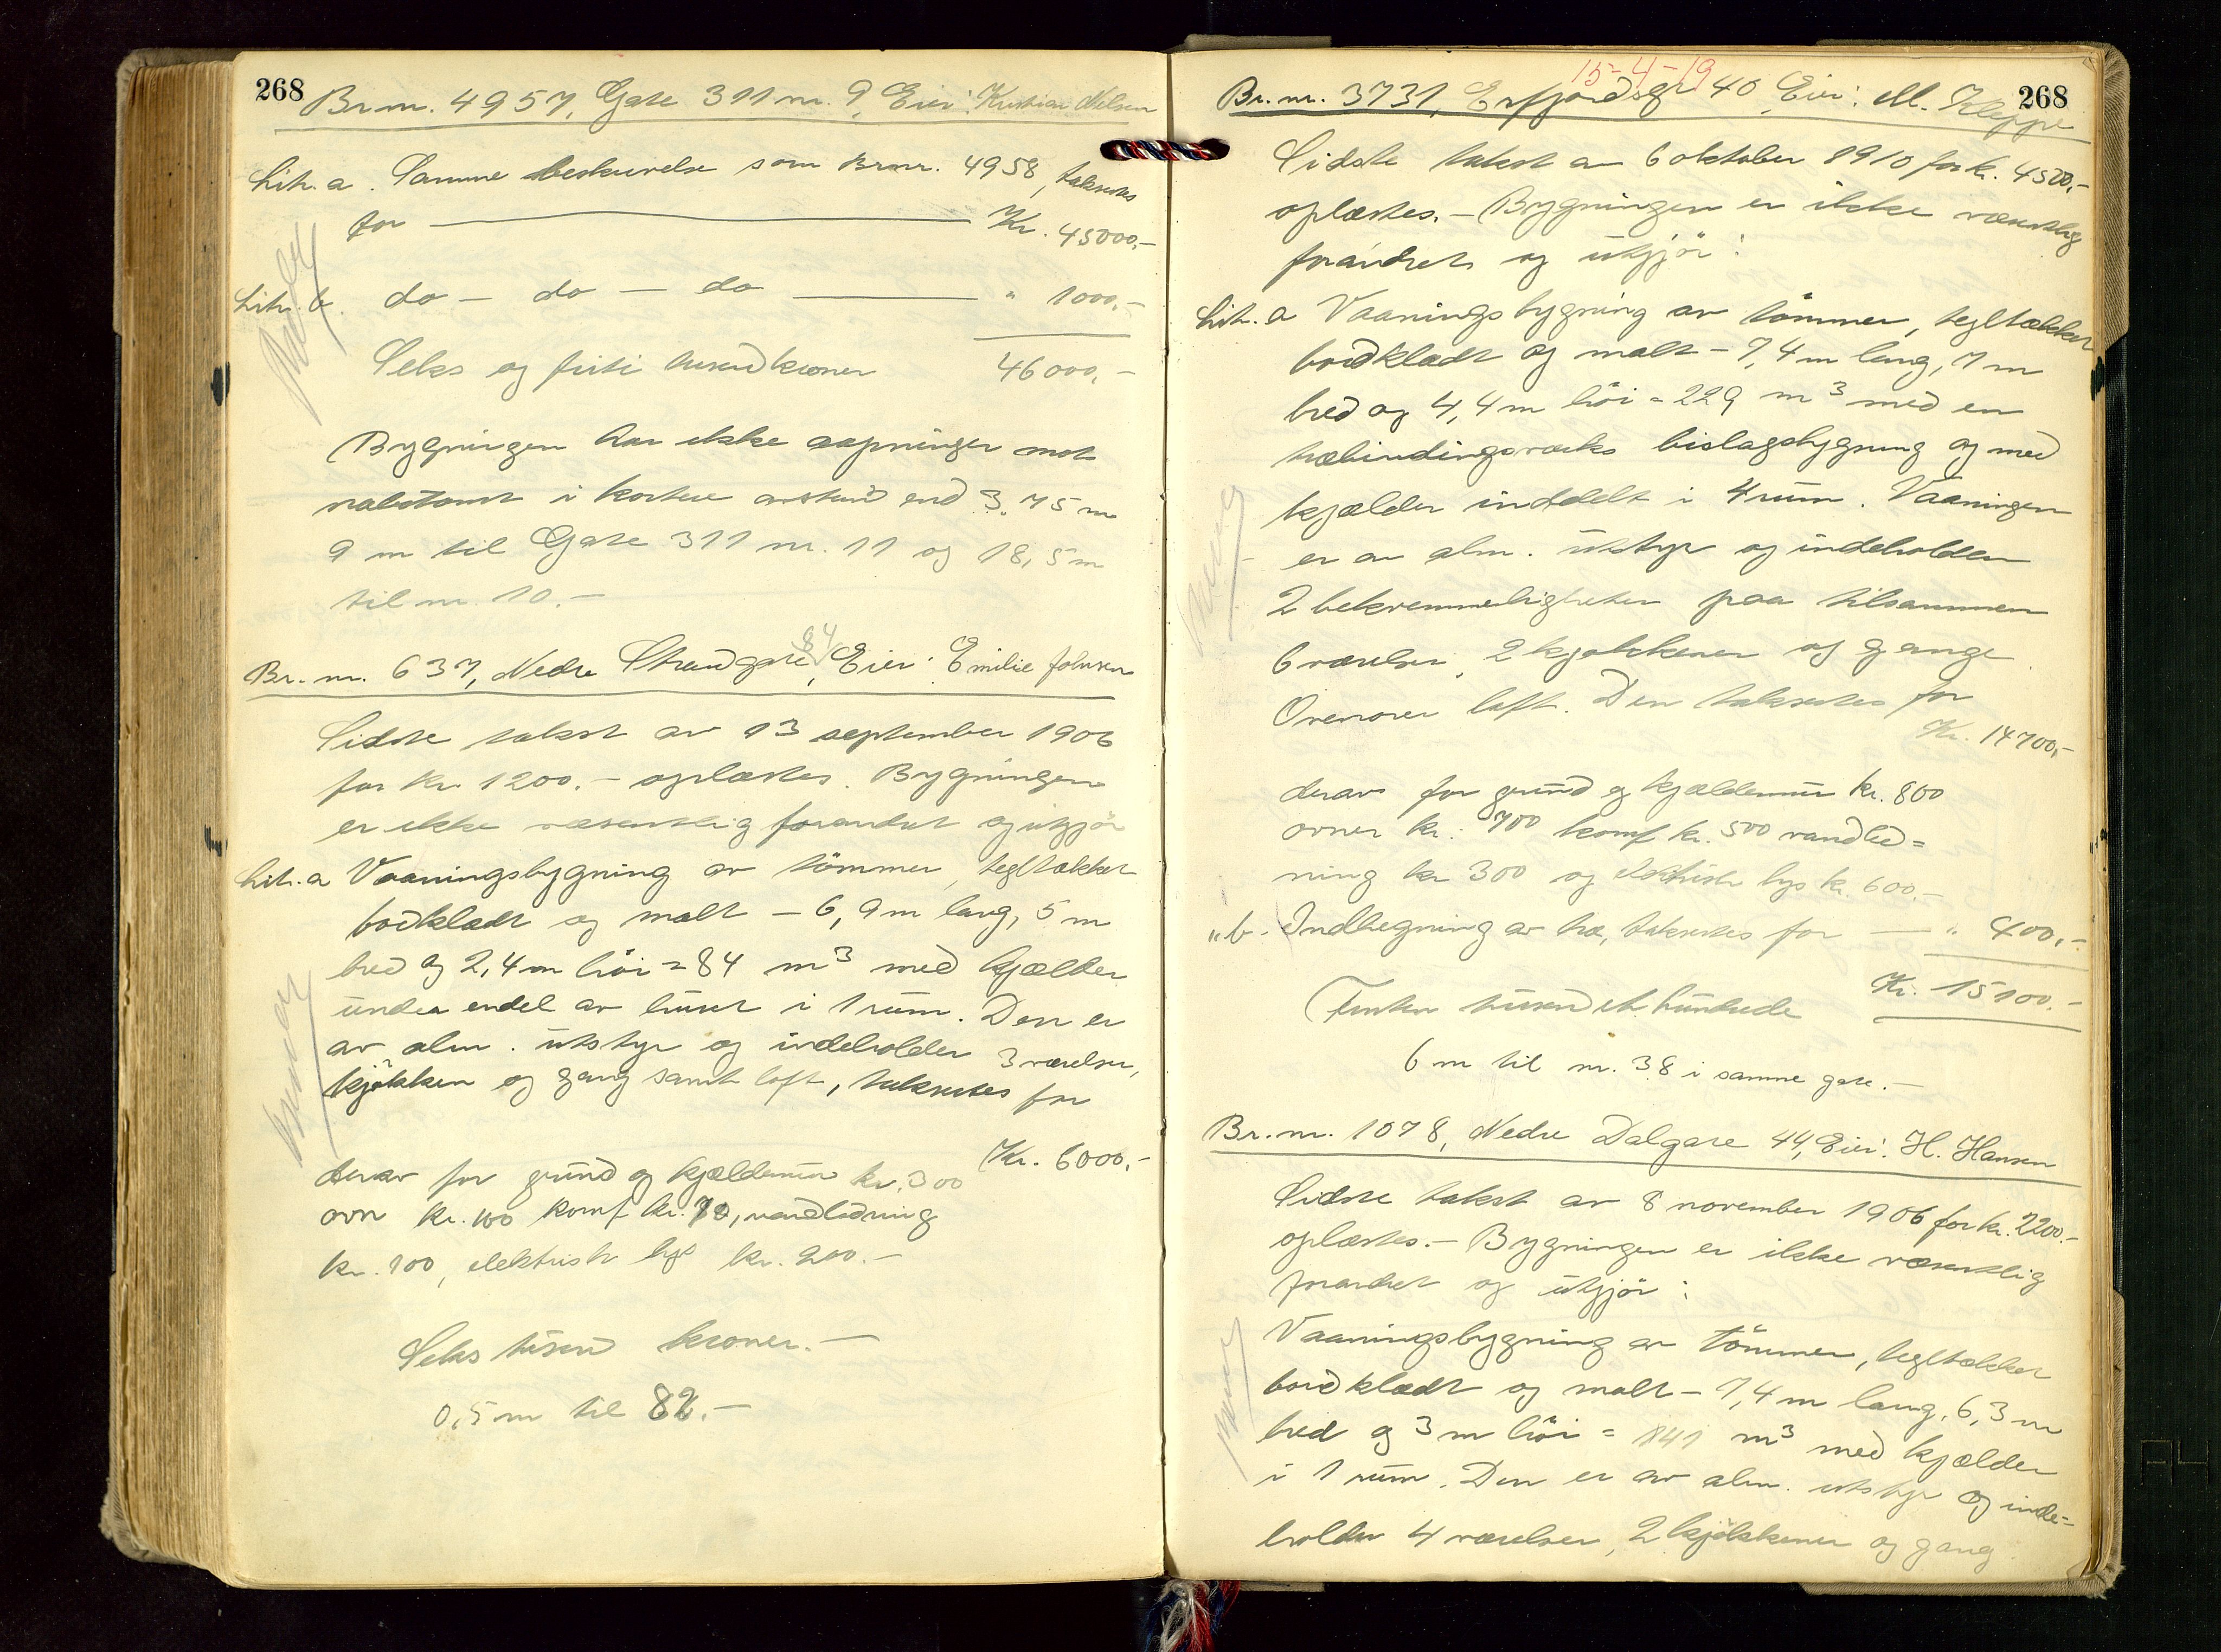 268
Br.nr. 4957, Gate 311 nr. 9, Eier: Kristian Nilsen
Litr. a. Samme beskrivelse som Brnr. 4958, takseres
for Kr. 45000,-
Litr. b. do - do - do " 1000,-
Seks og firti tusen kroner 46000,-
Bygningen har ikke aapninger mot
nabotomt i kortere avstand end 3.75 m
9 m til Gate 311 nr. 11 og 18,5 m
til nr. 10.-
Br. nr. 637, Nedre Strandgate 84, Eier: Emilie Johnsen
Sidste takst av 13 september 1906
for kr. 1200.- oplæstes. Bygningen
er ikke væsentlig forandret og utgjör
Litr. a Vaaningsbygning av tömmer, tegltækket
bordklædt og malt - 6,9 m lang, 5 m
bred og 2,4 m höi = 84 m³ med kjælder
under endel av huset i 1 rum. Den er
av alm. utstyr og indeholder 3 værelser,
kjökken og gang samt loft, takseres for
Kr. 6000,-
derav for grund og kjældermur kr. 300
ovn kr. 100 komf kr. 70, vandledning
kr. 100, elektrisk lys kr. 200.-
Seks tusen kroner.-
0,5 m til 82.-
15-4-19
268
Br. nr. 3731, Erfjordsgt 40, Eier: M. Kleppe
Sidste takst av 6 oktober 1910 for kr. 4500,-
oplæstes. - Bygningen er ikke væsentlig
forandret og utgjör:
Litr. a Vaaningsbygning av tömmer, tegltækket
bordklædt og malt - 7,4 m lang, 7 m
bred og 4,4 m höi = 229 m³ med en
træbindingsverks bislagsbygning og med
kjælder inddelt i 4 rum. Vaaningen
er av alm. utstyr og indeholder
2 bekvemmeligheter paa tilsammen
6 værelser, 2 kjökkener og gange.
Ovenover loft. Den takseres for
Kr. 14700,-
derav for grund og kjældermur kr. 800
ovner kr. 700 komf. kr. 500 vandled=
ning kr 300 og elektrisk lys kr. 600.-
" b. Indhegning av træ, takseres for " 400,-
Femten tusen et hundrede Kr. 15100,-
6 m til nr. 38 i samme gate.-
Br. nr. 1078, Nedre Dalgate 44, Eier: H. Hansen
Sidste takst av 8 november 1906 for kr. 2200.-
oplæstes. - Bygningen er ikke væsentlig
forandret og utgjör:
Vaaningsbygning av tömmer, tegltækket
bordklædt og malt - 7,4 m lang, 6,3 m
bred og 3 m höi = 141 m³ med kjælder
i 1 rum. Den er av alm. utstyr og inde=
holder 4 værelser, 2 kjökkener og gang